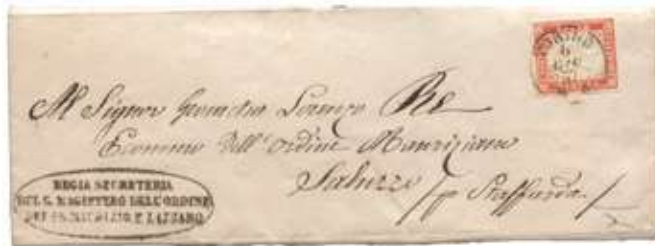 TORINO
6
Al Signor Geometra Lorenzo Re
Economo dell'Ordine Mauriziano
Saluzzo / p Staffarda /
REGIA SECRETERIA
DEL G. MAGISTERO DELL'ORDINE
DEI SS. MAURIZIO E LAZZARO